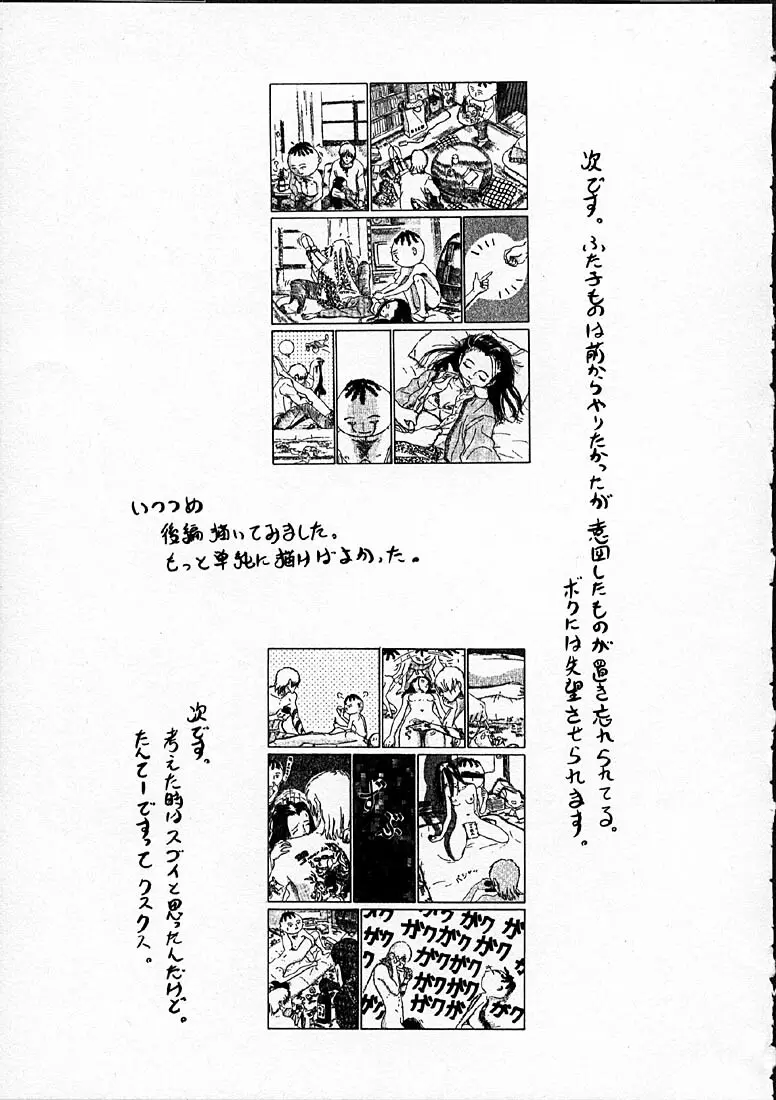 次です。ふた子ものは前からやりたかったが意図したものが置き忘れられてる。
ボクには失望させられます。
いつつめ
後編描いてみました。
もっと単純に描けばよかった。
次です。
考えた時はスゴイと思ったんだけど。
たんてーですって クスクス。
ずぶっ
パシャッ
ガク ガク ガク ガク
ガク ガク ガク ガク
ガク ガク
ガク ガク
ガク ガク ガク